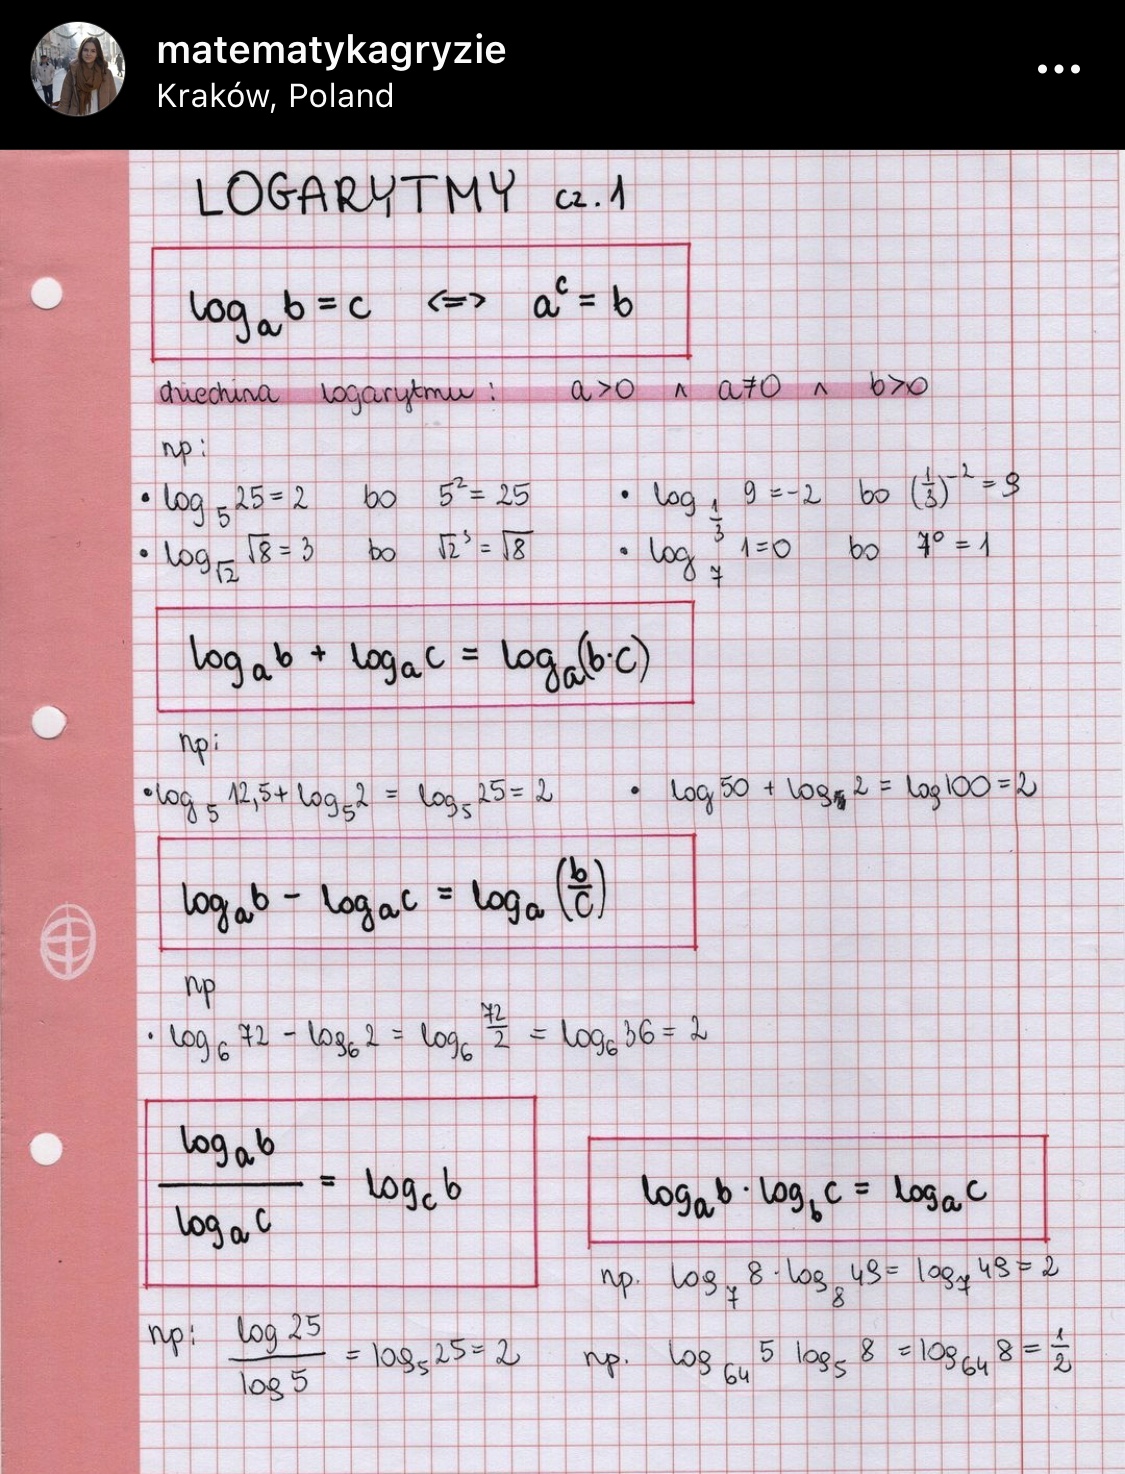 matematykagryzie
Kraków, Poland
LOGARYTMY cz.1
logₐ b = c <=> aᶜ = b
dziedzina logarytmu: a>0 ∧ a≠0 ∧ b>0
np:
• log₅ 25 = 2 bo 5² = 25
• log_(1/3) 9 = -2 bo (1/3)⁻² = 9
• log_√2 √8 = 3 bo √2³ = √8
• log₇ 1 = 0 bo 7⁰ = 1
logₐ b + logₐ c = logₐ(b·c)
np:
• log₅ 12,5 + log₅ 2 = log₅ 25 = 2
• log 50 + log 2 = log 100 = 2
logₐ b - logₐ c = logₐ (b/c)
np
• log₆ 72 - log₆ 2 = log₆ 72/2 = log₆ 36 = 2
logₐ b / logₐ c = log_c b
logₐ b · log_b c = logₐ c
np. log₇ 8 · log₈ 49 = log₇ 49 = 2
np: log 25 / log 5 = log₅ 25 = 2
np. log₆₄ 5 log₅ 8 = log₆₄ 8 = 1/2